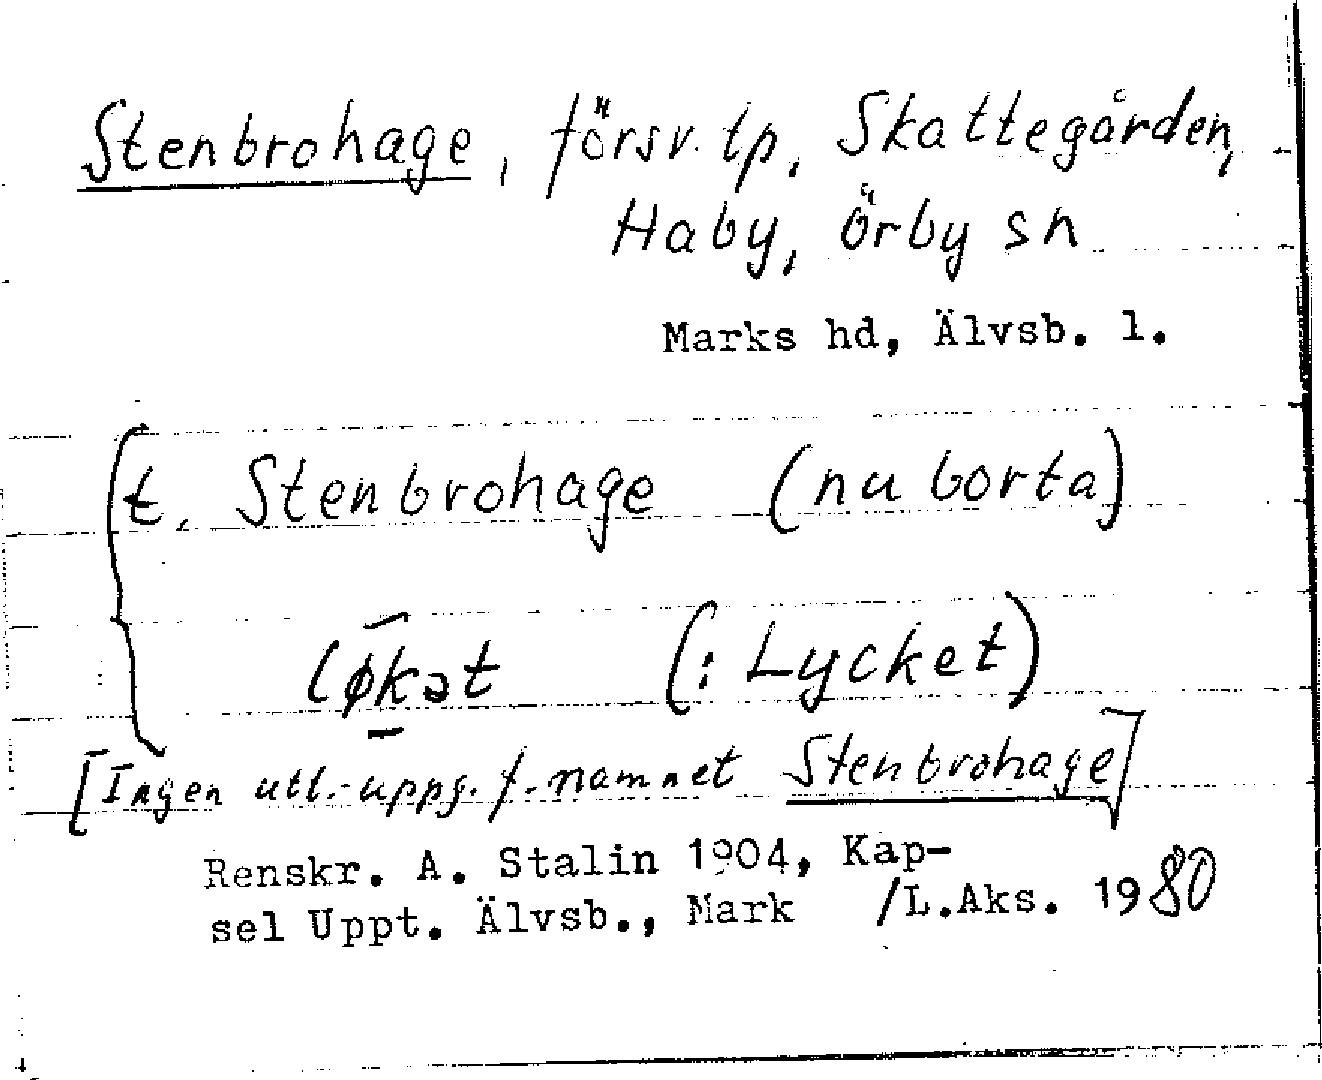 Stenbrohage, försv. tp, Skattegården,
Haby, Örby sn
Marks hd, Älvsb. l.
t. Stenbrohage (nu borta)
(: Lycket)
[Ingen utt.-uppg. f. namnet Stenbrohage]
Renskr. A. Stalin 1904, Kap-
sel Uppt. Älvsb., Mark /L.Aks. 1980